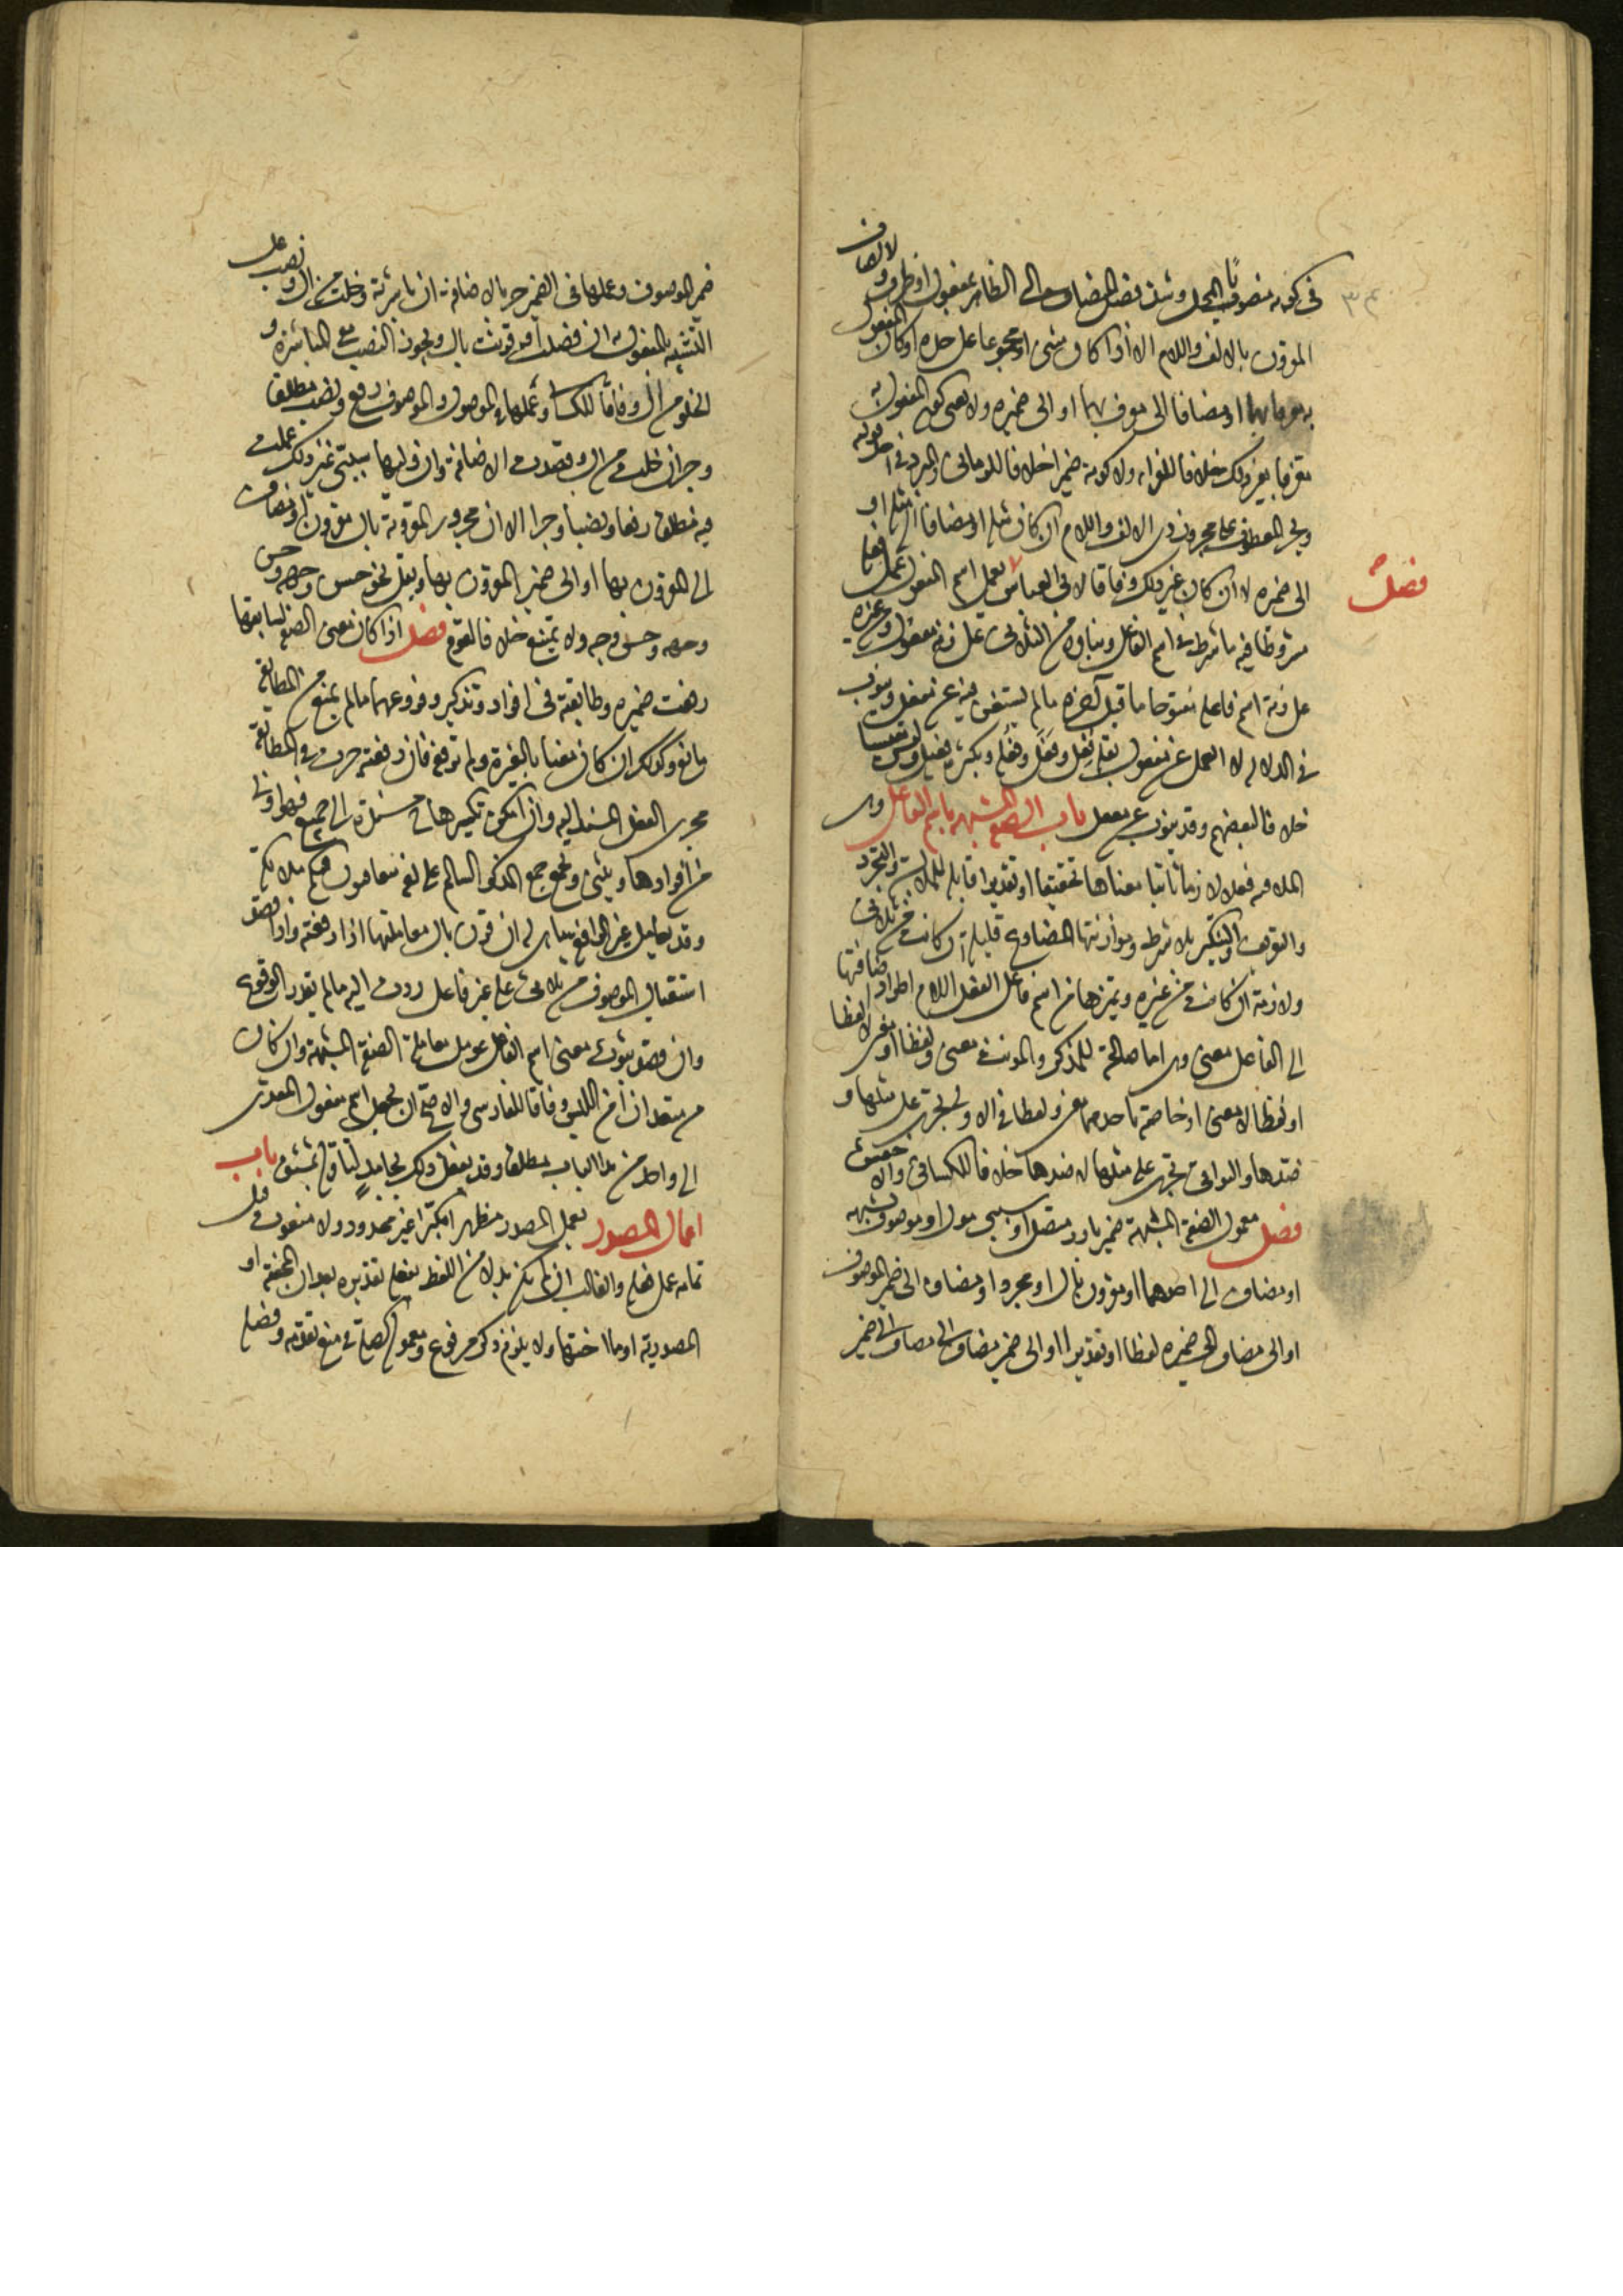 في كونه منصوب المحل وشذ فصل المضاف الى الظاهر بمفعول او ظرف ولا يضاف
المقرون بالالف واللام الا اذا كان مثنى او مجموعا على حده او كان المفعول
به معرفا بهما او مضافا الى معرف بهما او الى ضميره ولا يغني كون المفعول به
معرفا بغير ذلك خلافا للفراء ولا كونه ضميرا خلافا للرماني والمبرد في احد قوليه
ويجر المعطوف على مجرور ذي الالف واللام ان كان مثله او مضافا الى مثله او
الى ضميره لا ان كان غير ذلك وفاقا لابي العباس
فصل
يعمل اسم المفعول عمل
مشروطا فيه ما شرط في اسم الفاعل وبناؤه من الثلاثي على زنة مفعول ومن غيره
على زنة اسم فاعله مفتوحا ما قبل آخره ما لم يستغن فيه عن مفعل وينوب
في الدلالة لا العمل عن مفعول بقلة فعل وفعل وفعلة وبكثرة فعيل وليس مقيسا
خلافا لبعضهم وقد ينوب عن مفعل باب الصفة المشبهة باسم الفاعل وهي
الملاقية فعلا لازما ثابتا معناها تحقيقا او تقديرا قابلة للملابسة والتجرد
والتعريف والتنكير بلا شرط وموازنتها المضارع قليلة ان كانت من ثلاثي
ولازمة ان كانت من غيره ويميزها من اسم فاعل الفعل اللازم اطراد اضافتها
الى الفاعل معنى وهي اما صالحة للمذكر والمؤنث معنى ولفظا او معنى لا لفظا
او لفظا لا معنى او خاصة باحدهما معنى ولفظا فالاولى تجري على مثلها و
ضدها والبواقي تجري على مثلها لا ضدها خلافا للكسائي والاخفش
فصل معمول الصفة المشبهة ضمير بارز متصل او سببي موصول او موصوف يشبهه
او مضاف الى احدهما او مقرون بال او مجرد او مضاف الى ضمير الموصوف
او الى مضاف الى ضميره لفظا او تقديرا او الى ضمير مضاف الى مضاف الى ضمير
ضمير الموصوف وعملها في الضمير جر بالاضافة ان باشرته وخلت من ال ونصب على
التشبيه بالمفعول به ان فصلت او قرنت بال ويجوز النصب مع المباشرة و
الخلو من ال وفاقا للكسائي وعملها في الموصول والموصوف رفع ونصب مطلقا
وجر ان خلت من ال وقصدت الاضافة وان وليها سببي غير ذلك عملت
فيه مطلقا رفعا ونصبا وجرا الا ان مجرور المقرونة بال مقرون بها او مضاف
الى المقرون بها او الى ضمير المقرون بها ويقل نحو حسن وجهه وحسن
وجهه وحسن وجه ولا يمتنع خلافا لقوم فصل اذا كان معنى الصفة لسابقها
رفعت ضميره وطابقته في افراد وتذكير وفروعهما ما لم يمنع من المطابقة
مانع وكذلك ان كان معناها لغيره ولم ترفعه فان رفعته جرت في المطابقة
مجرى الفعل المسند اليه وان امكن تكسيرها
من افرادها ويثنى ويجمع جمع المذكر السالم على لغة يتعاقبون فيكم ملائكة
وقد يعامل غير الرافع ما هي له ان قرن بال معاملتها اذا رفعته واذا قصد
استقبال الموصوف من ثلاثي على غير فاعل ردت اليه ما لم يقدر الوقوع
وان قصد ثبوت معنى اسم الفاعل عومل معاملة الصفة المشبهة وان كان
من متعد ان امن اللبس وفاقا للفارسي والاصح ان يجعل اسم مفعول المتعدي
الى واحد من هذا الباب مطلقا وقد يفعل ذلك بجامد لتأوله بمشتق باب
اعمال المصدر يعمل المصدر مظهرا مكبرا غير محدود ولا منعوت قبل
تمامه عمل فعله والغالب ان لم يكن بدلا من اللفظ بفعله تقديره بعد ان المخففة او
المصدرية او ما اختها ولا يلزم ذكر مرفوعه ومعموله كالصلة في منع تقدمه وفصله